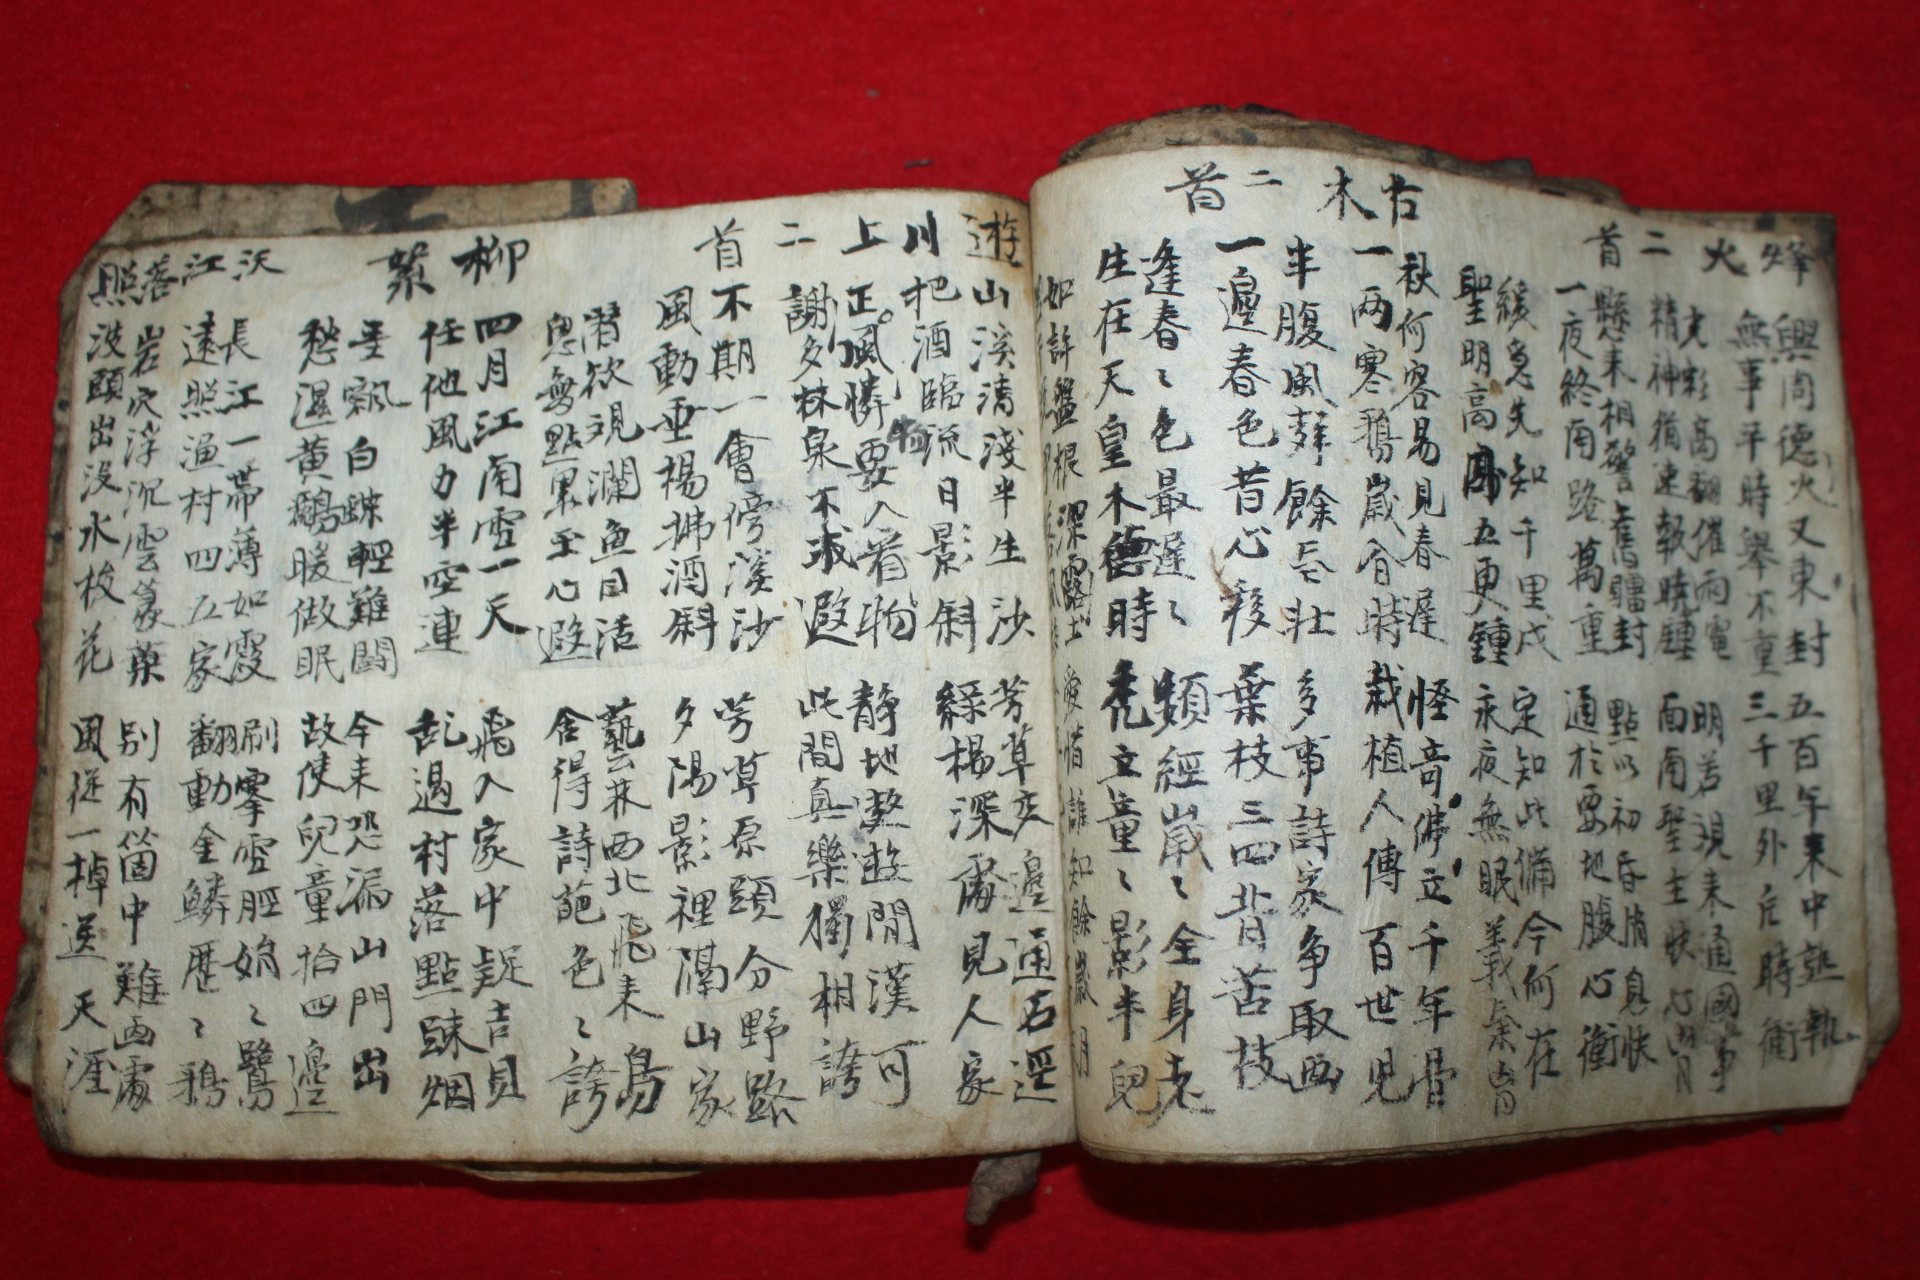 烽火二首
興周德火又東封 五百年來中熟執
無事平時舉不重 三千里外斥時衛
光彩高翻催雨電 明若現來通國事
精神擁速報曉鍾 面南聖主狀心胷
懸來相警舊疆封 點以初昏消息快
一夜終南路萬重 通於要地腹心衝
緩急先知千里戍 定知此備今何在
聖明高閣五更鍾 永夜無眠義氣胷
古木二首
秋何容易見春遲 怪音佛立千年骨
一両寒鵶歲合時 栽植人傳百世兒
半腹風聲餘㠯壯 多事詩家争取画
一邊春色昔心移 葉枝三四背苦枝
逢春〻色最遲〻 類經歲〻全身老
生在天皇木德時 禿立童〻影半兒
如許盤根深露土 愛惜誰知餘歲月
遊川上二首
山溪清淺半生沙 芳草交邊通石逕
把酒臨流日影斜 綠楊深處見人家
正風憐要人着物 静地遨遊閒漢可
謝多林泉不我遐 此間真樂獨相誇
不期一會傍溪沙 芳草原頭分野路
風動垂楊拂酒斜 夕陽影裡隔山家
潛欲視瀾魚目活 藝林西北飛来島
忽無點累玉心遐 含得詩葩色〻誇
柳絮
四月江南雪一天 飛入家中疑吉貝
任他風力半空連 乱過村落點踈烟
垂飄白蝶輕難鬪 今来恐漏山門出
愁濕黄鸝暖做眠 故使兒童拾四邊
沃江落照
長江一帶薄如霞 刷雾雪脛始〻鷺
遠照漁村四五家 翻動金鱗歴〻鵶
岩次浮沉雲裏藥 别有箇中難画處
波頭出没水梭花 風從一棹送天涯